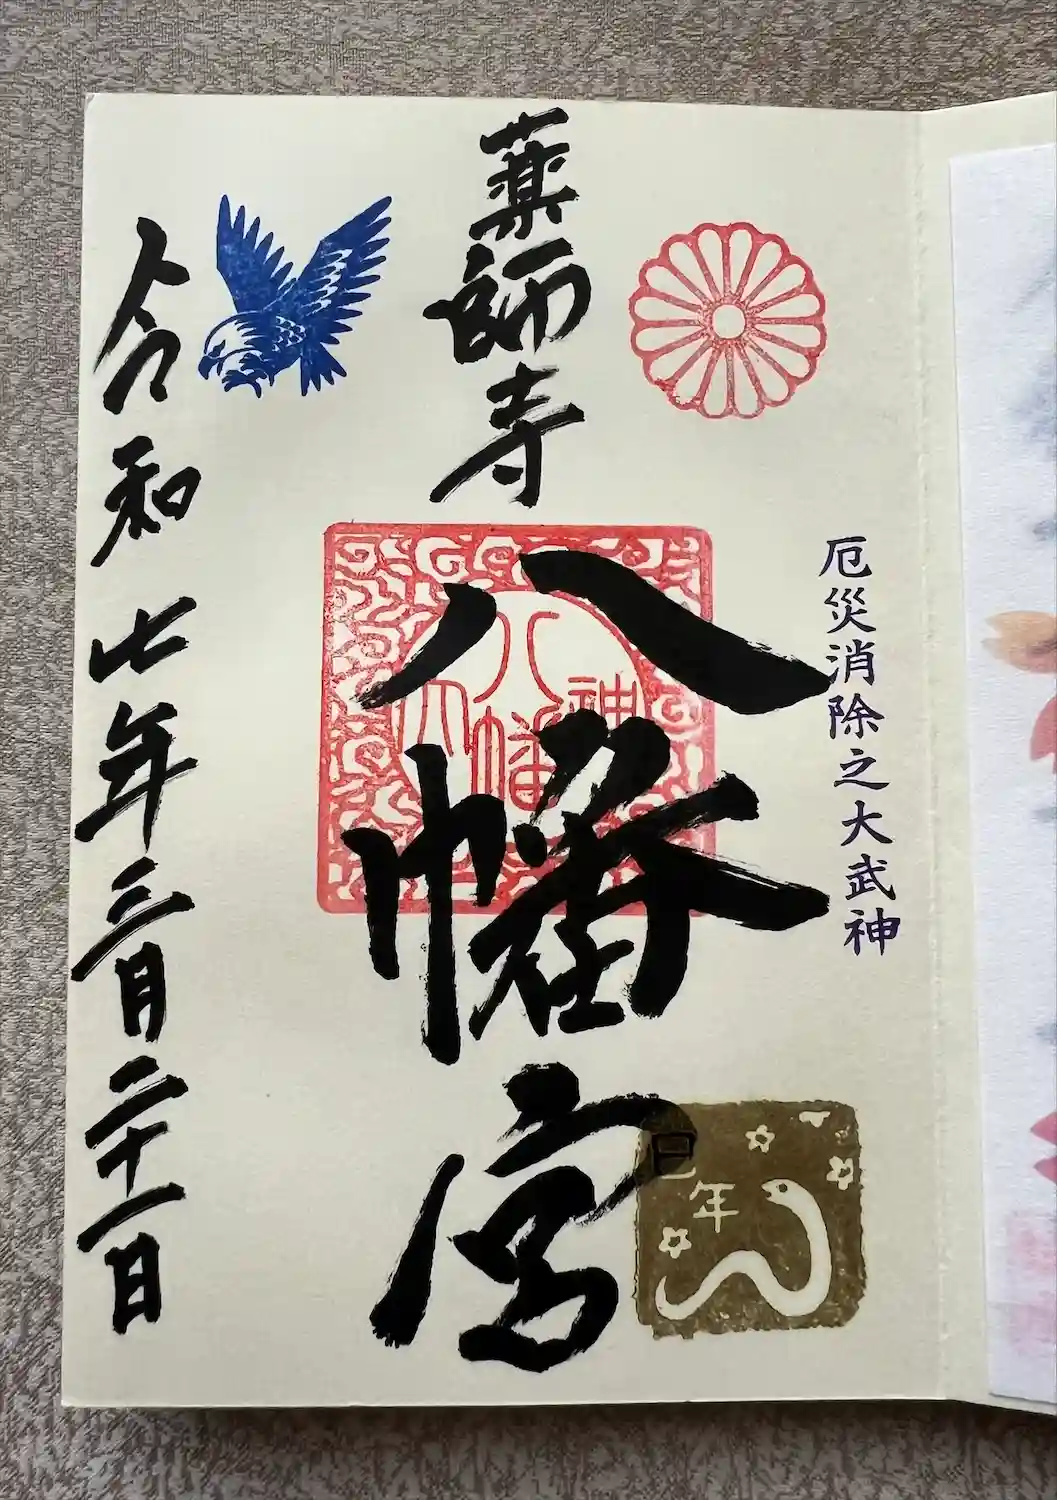 厄災消除之大武神
薬師寺
八幡宮
八幡神
巳年
令和七年三月二十一日